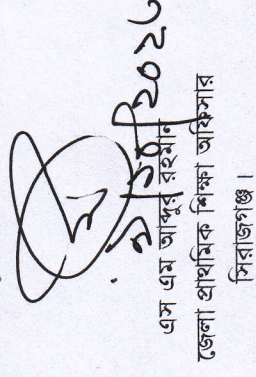 এস এম আব্দুর রহমান
জেলা প্রাথমিক শিক্ষা অফিসার
সিরাজগঞ্জ।